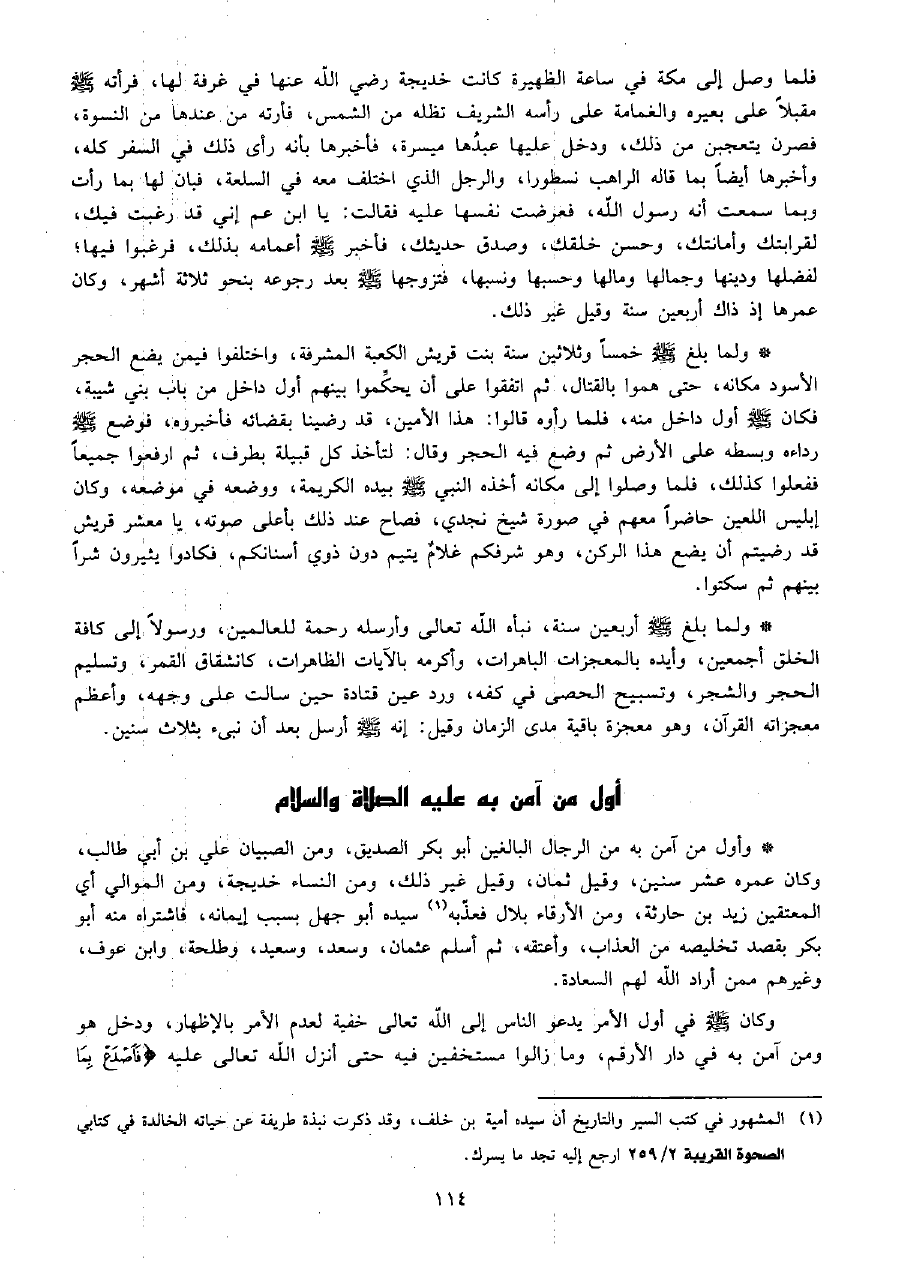 فلما وصل إلى مكة في ساعة الظهيرة كانت خديجة رضي اللّه عنها في غرفة لها، فرأته ﷺ
مقبلاً على بعيره والغمامة على رأسه الشريف تظله من الشمس، فأرته من عندها من النسوة،
فصرن يتعجبن من ذلك، ودخل عليها عبدُها ميسرة، فأخبرها بأنه رأى ذلك في السفر كله،
وأخبرها أيضاً بما قاله الراهب نسطورا، والرجل الذي اختلف معه في السلعة، فبان لها بما رأت
وبما سمعت أنه رسول اللّه، فعرضت نفسها عليه فقالت: يا ابن عم إني قد رغبت فيك،
لقرابتك وأمانتك، وحسن خلقك، وصدق حديثك، فأخبر ﷺ أعمامه بذلك، فرغبوا فيها؛
لفضلها ودينها وجمالها ومالها وحسبها ونسبها، فتزوجها ﷺ بعد رجوعه بنحو ثلاثة أشهر، وكان
عمرها إذ ذاك أربعين سنة وقيل غير ذلك.
* ولما بلغ ﷺ خمساً وثلاثين سنة بنت قريش الكعبة المشرفة، واختلفوا فيمن يضع الحجر
الأسود مكانه، حتى هموا بالقتال، ثم اتفقوا على أن يحكِّموا بينهم أول داخل من باب بني شيبة،
فكان ﷺ أول داخل منه، فلما رأوه قالوا: هذا الأمين، قد رضينا بقضائه فأخبروه، فوضع ﷺ
رداءه وبسطه على الأرض ثم وضع فيه الحجر وقال: لتأخذ كل قبيلة بطرف، ثم ارفعوا جميعاً
ففعلوا كذلك، فلما وصلوا إلى مكانه أخذه النبي ﷺ بيده الكريمة، ووضعه في موضعه، وكان
إبليس اللعين حاضراً معهم في صورة شيخ نجدي، فصاح عند ذلك بأعلى صوته، يا معشر قريش
قد رضيتم أن يضع هذا الركن، وهو شرفكم غلامٌ يتيم دون ذوي أسنانكم، فكادوا يثيرون شراً
بينهم ثم سكتوا.
* ولما بلغ ﷺ أربعين سنة، نبأه اللّه تعالى وأرسله رحمة للعالمين، ورسولاً إلى كافة
الخلق أجمعين، وأيده بالمعجزات الباهرات، وأكرمه بالآيات الظاهرات، كانشقاق القمر، وتسليم
الحجر والشجر، وتسبيح الحصى في كفه، ورد عين قتادة حين سالت على وجهه، وأعظم
معجزاته القرآن، وهو معجزة باقية مدى الزمان وقيل: إنه ﷺ أرسل بعد أن نبىء بثلاث سنين.
أول من آمن به عليه الصلاة والسلام
* وأول من آمن به من الرجال البالغين أبو بكر الصديق، ومن الصبيان علي بن أبي طالب،
وكان عمره عشر سنين، وقيل ثمان، وقيل غير ذلك، ومن النساء خديجة، ومن الموالي أي
المعتقين زيد بن حارثة، ومن الأرقاء بلال فعذّبه(١) سيده أبو جهل بسبب إيمانه، فاشتراه منه أبو
بكر بقصد تخليصه من العذاب، وأعتقه، ثم أسلم عثمان، وسعد، وسعيد، وطلحة، وابن عوف،
وغيرهم ممن أراد اللّه لهم السعادة.
وكان ﷺ في أول الأمر يدعو الناس إلى اللّه تعالى خفية لعدم الأمر بالإظهار، ودخل هو
ومن آمن به في دار الأرقم، وما زالوا مستخفين فيه حتى أنزل اللّه تعالى عليه ﴿فَأَصْدَعْ بِمَا
(١) المشهور في كتب السير والتاريخ أن سيده أمية بن خلف، وقد ذكرت نبذة طريفة عن حياته الخالدة في كتابي
الصحوة القريبة ٢/ ٢٥٩ ارجع إليه تجد ما يسرك.
١١٤